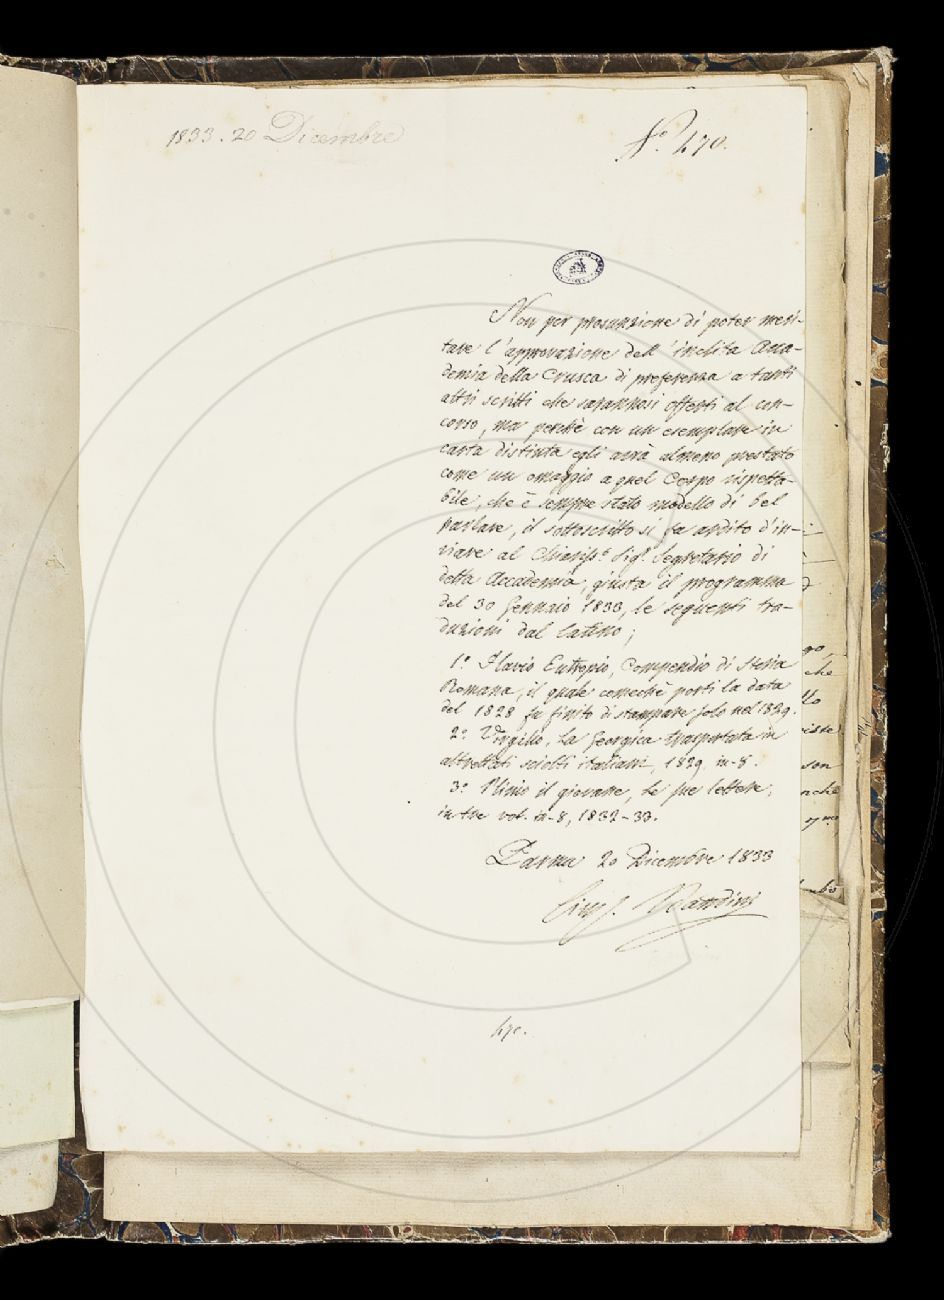 1833. 20 Dicembre
N.º 470.
Non per presunzione di poter meri-
tare l'approvazione dell'inclita Acca-
demia della Crusca di preferenza a tanti
altri scritti che sarannosi offerti al con-
corso, ma perchè con un esemplare in
carta distinta egli avrà almeno prestato
come un omaggio a quel Corpo rispetta-
bile, che è sempre stato modello di bel
parlare, il sottoscritto si fa ardito d'in-
viare al Chiariss.º Sig.r Segretario di
detta Accademia, giusta il programma
del 30 Gennaio 1833, le seguenti tra-
duzioni dal latino;
1.º Flavio Eutropio, Compendio di Storia
Romana, il quale comechè porti la data
del 1828 fu finito di stampare solo nel 1829.
2.º Virgilio, La Georgica trasportata in
altrettati sciolti italiani, 1829. in-8.
3.º Plinio il giovane, Le sue lettere,
in tre vol. in-8, 1832-33.
Parma 20 Dicembre 1833
Bandini
470.